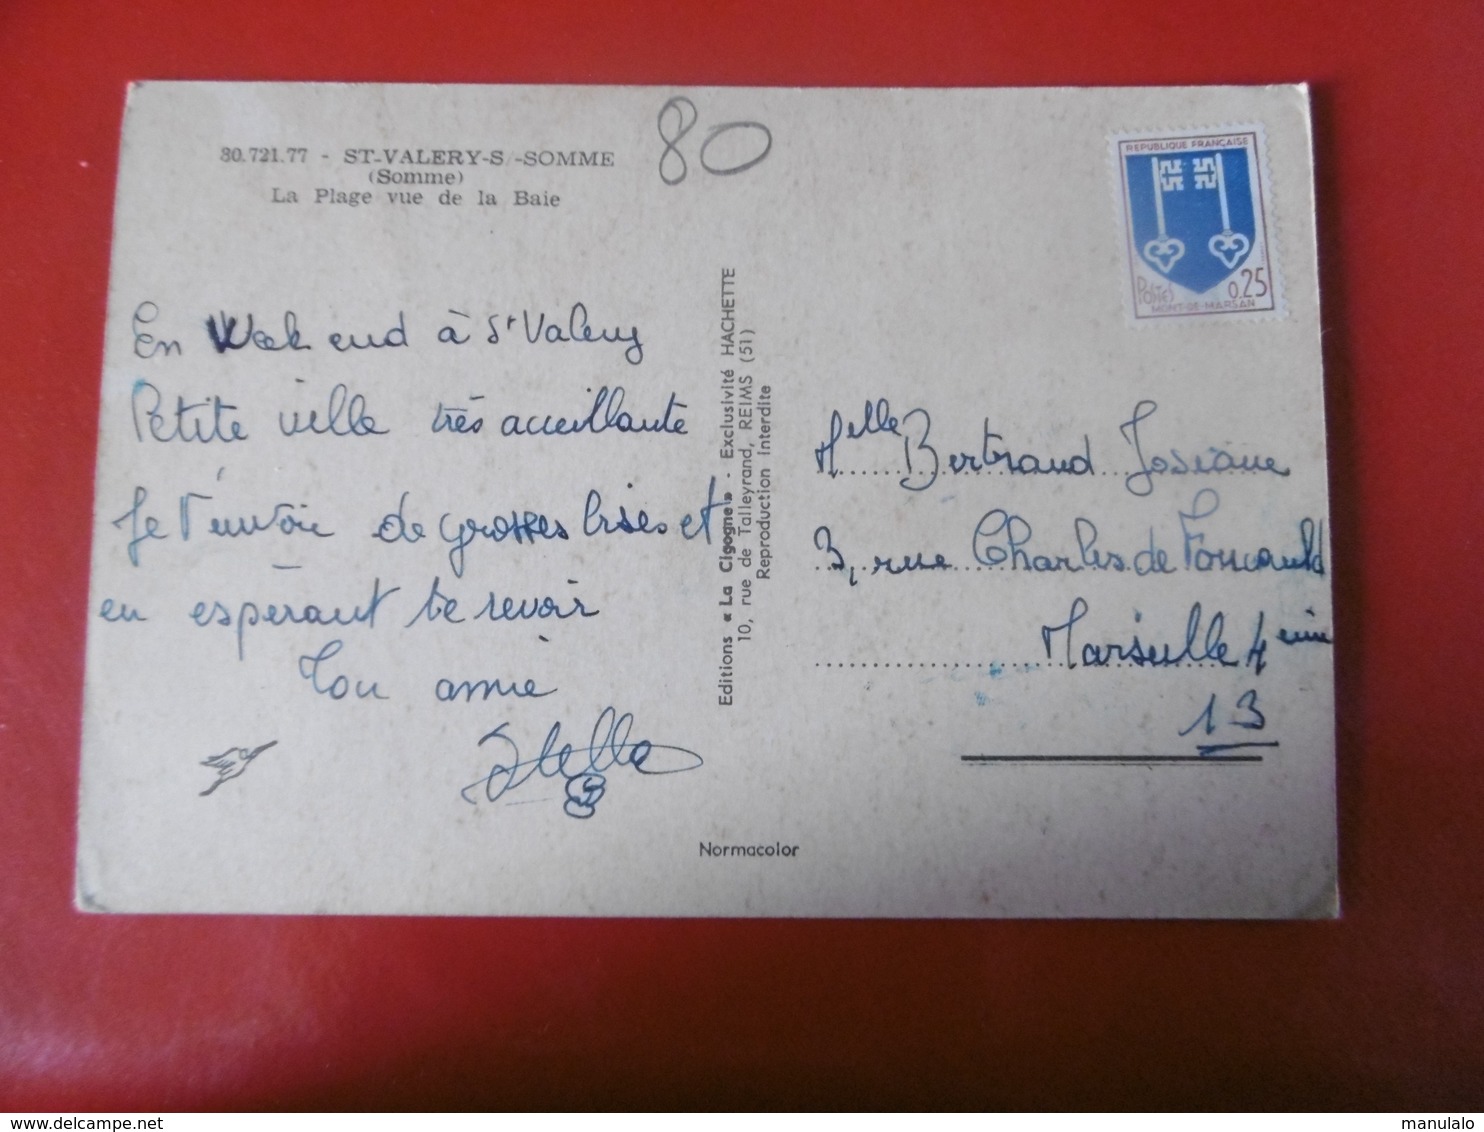 80.721.77 - ST-VALERY-S/-SOMME
(Somme)
La Plage vue de la Baie
80
REPUBLIQUE FRANÇAISE
Postes
0.25
MONT-DE-MARSAN
En Week end à St Valery
Petite ville très acceuillante
Je t'envoie de grosses bises et
en espérant te revoir
Ton amie
Stella
Editions « La Cigogne » - Exclusivité HACHETTE
10, rue de Talleyrand, REIMS (51)
Reproduction Interdite
Melle Bertrand Josiane
3, rue Charles de Foucauld
Marseille 4eme
13
Normacolor
www.delcampe.net
manulalo